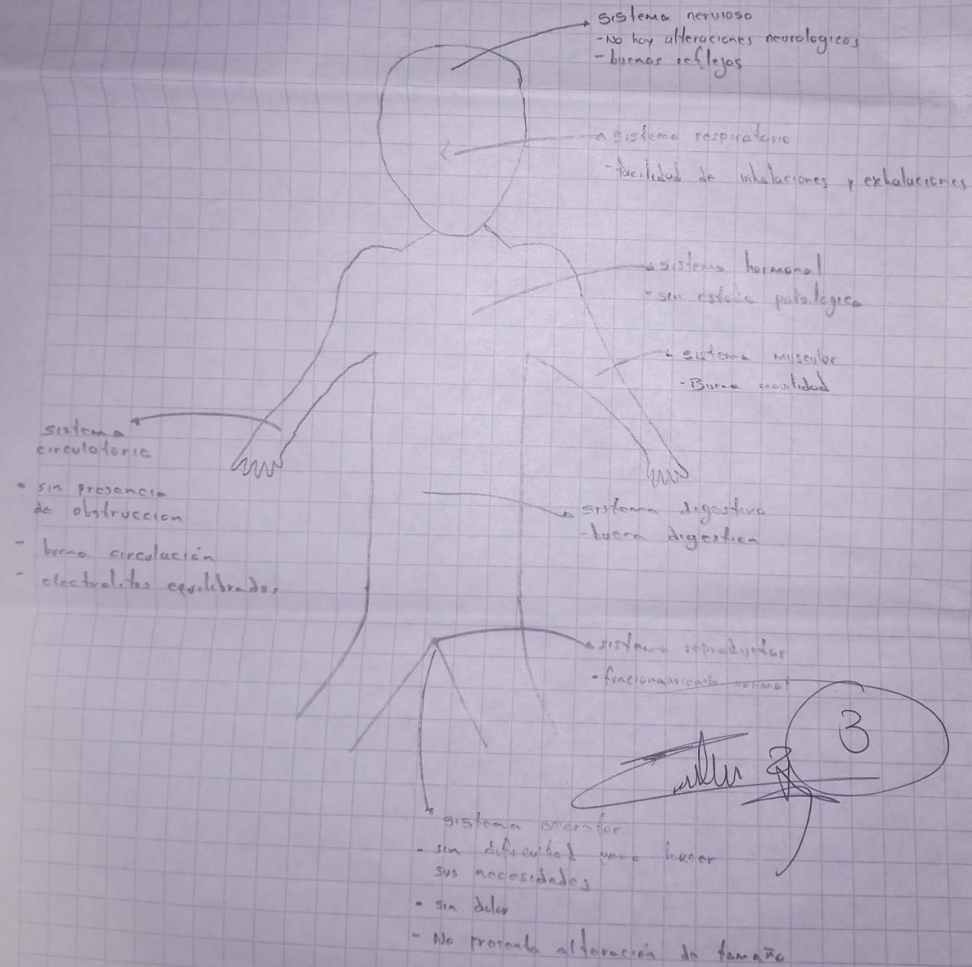 sistema nervioso
-No hay alteraciones neurologicos
-buenos reflejos
sistema respiratorio
-facilidad de inhalaciones y exhalaciones
sistema hormonal
-sin estado patologico
sistema muscular
-Buena movilidad
sistema
circulatorio
- sin presencia
de obstruccion
- buena circulación
- electrolitos equilibrados
sistema digestivo
-buena digestion
sistema reproductor
-funcionamiento normal
3
sistema
- sin dificultad para hacer
sus necesidades
- sin dolor
- No presenta alteración de tamaño